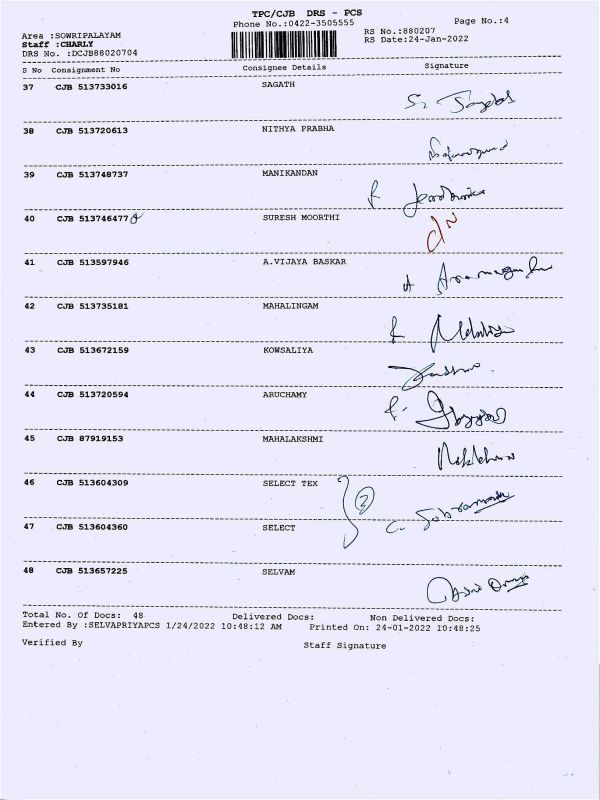 TPC/CJB DRS - PCS
Phone No.:0422-3505555
Page No.:4
Area :SOWRIPALAYAM
RS No.:880207
Staff :CHARLY
RS Date:24-Jan-2022
DRS No. :DCJB88020704
S No Consignment No Consignee Details Signature
37 CJB 513733016 SAGATH
38 CJB 513720613 NITHYA PRABHA
39 CJB 513748737 MANIKANDAN
40 CJB 513746477 SURESH MOORTHI
41 CJB 513597946 A.VIJAYA BASKAR
42 CJB 513735181 MAHALINGAM
43 CJB 513672159 KOWSALIYA
44 CJB 513720594 ARUCHAMY
45 CJB 87919153 MAHALAKSHMI
46 CJB 513604309 SELECT TEX 2
47 CJB 513604360 SELECT
48 CJB 513657225 SELVAM
Total No. Of Docs: 48 Delivered Docs: Non Delivered Docs:
Entered By :SELVAPRIYAPCS 1/24/2022 10:48:12 AM Printed On: 24-01-2022 10:48:25
Verified By Staff Signature